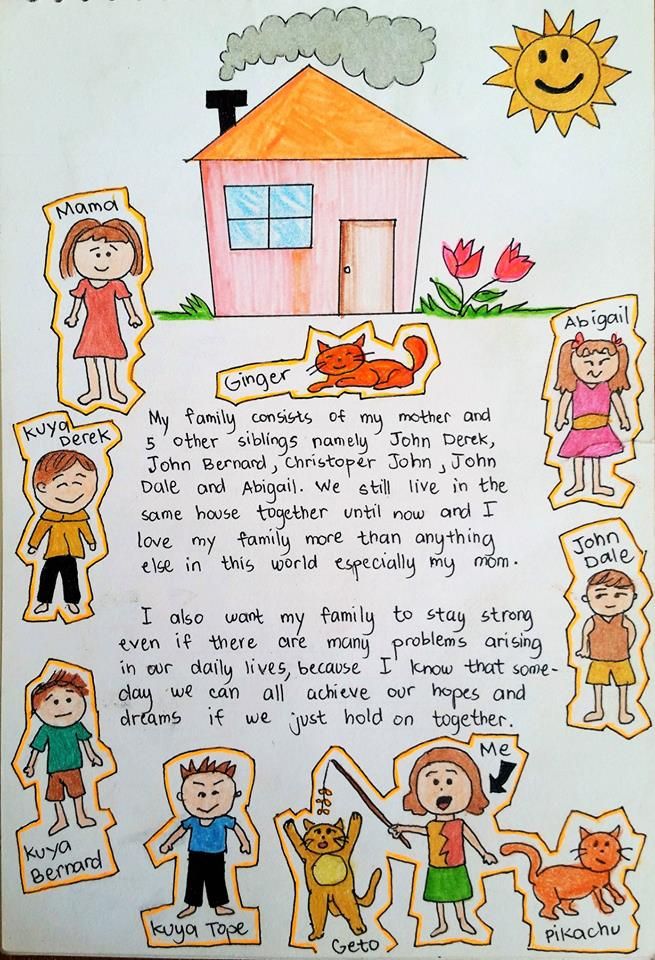 Mama
Abigail
Ginger
Kuya
Derek
My family consists of my mother and
5 other siblings namely John Derek,
John Bernard, Christoper John, John
Dale and Abigail. We still live in the
same house together until now and I
love my family more than anything
else in this world especially my mom.
John
Dale
I also want my family to stay strong
even if there are many problems arising
in our daily lives, because I know that some-
day we can all achieve our hopes and
dreams if we just hold on together.
Me
Kuya
Bernard
Kuya Tope
Geto
Pikachu